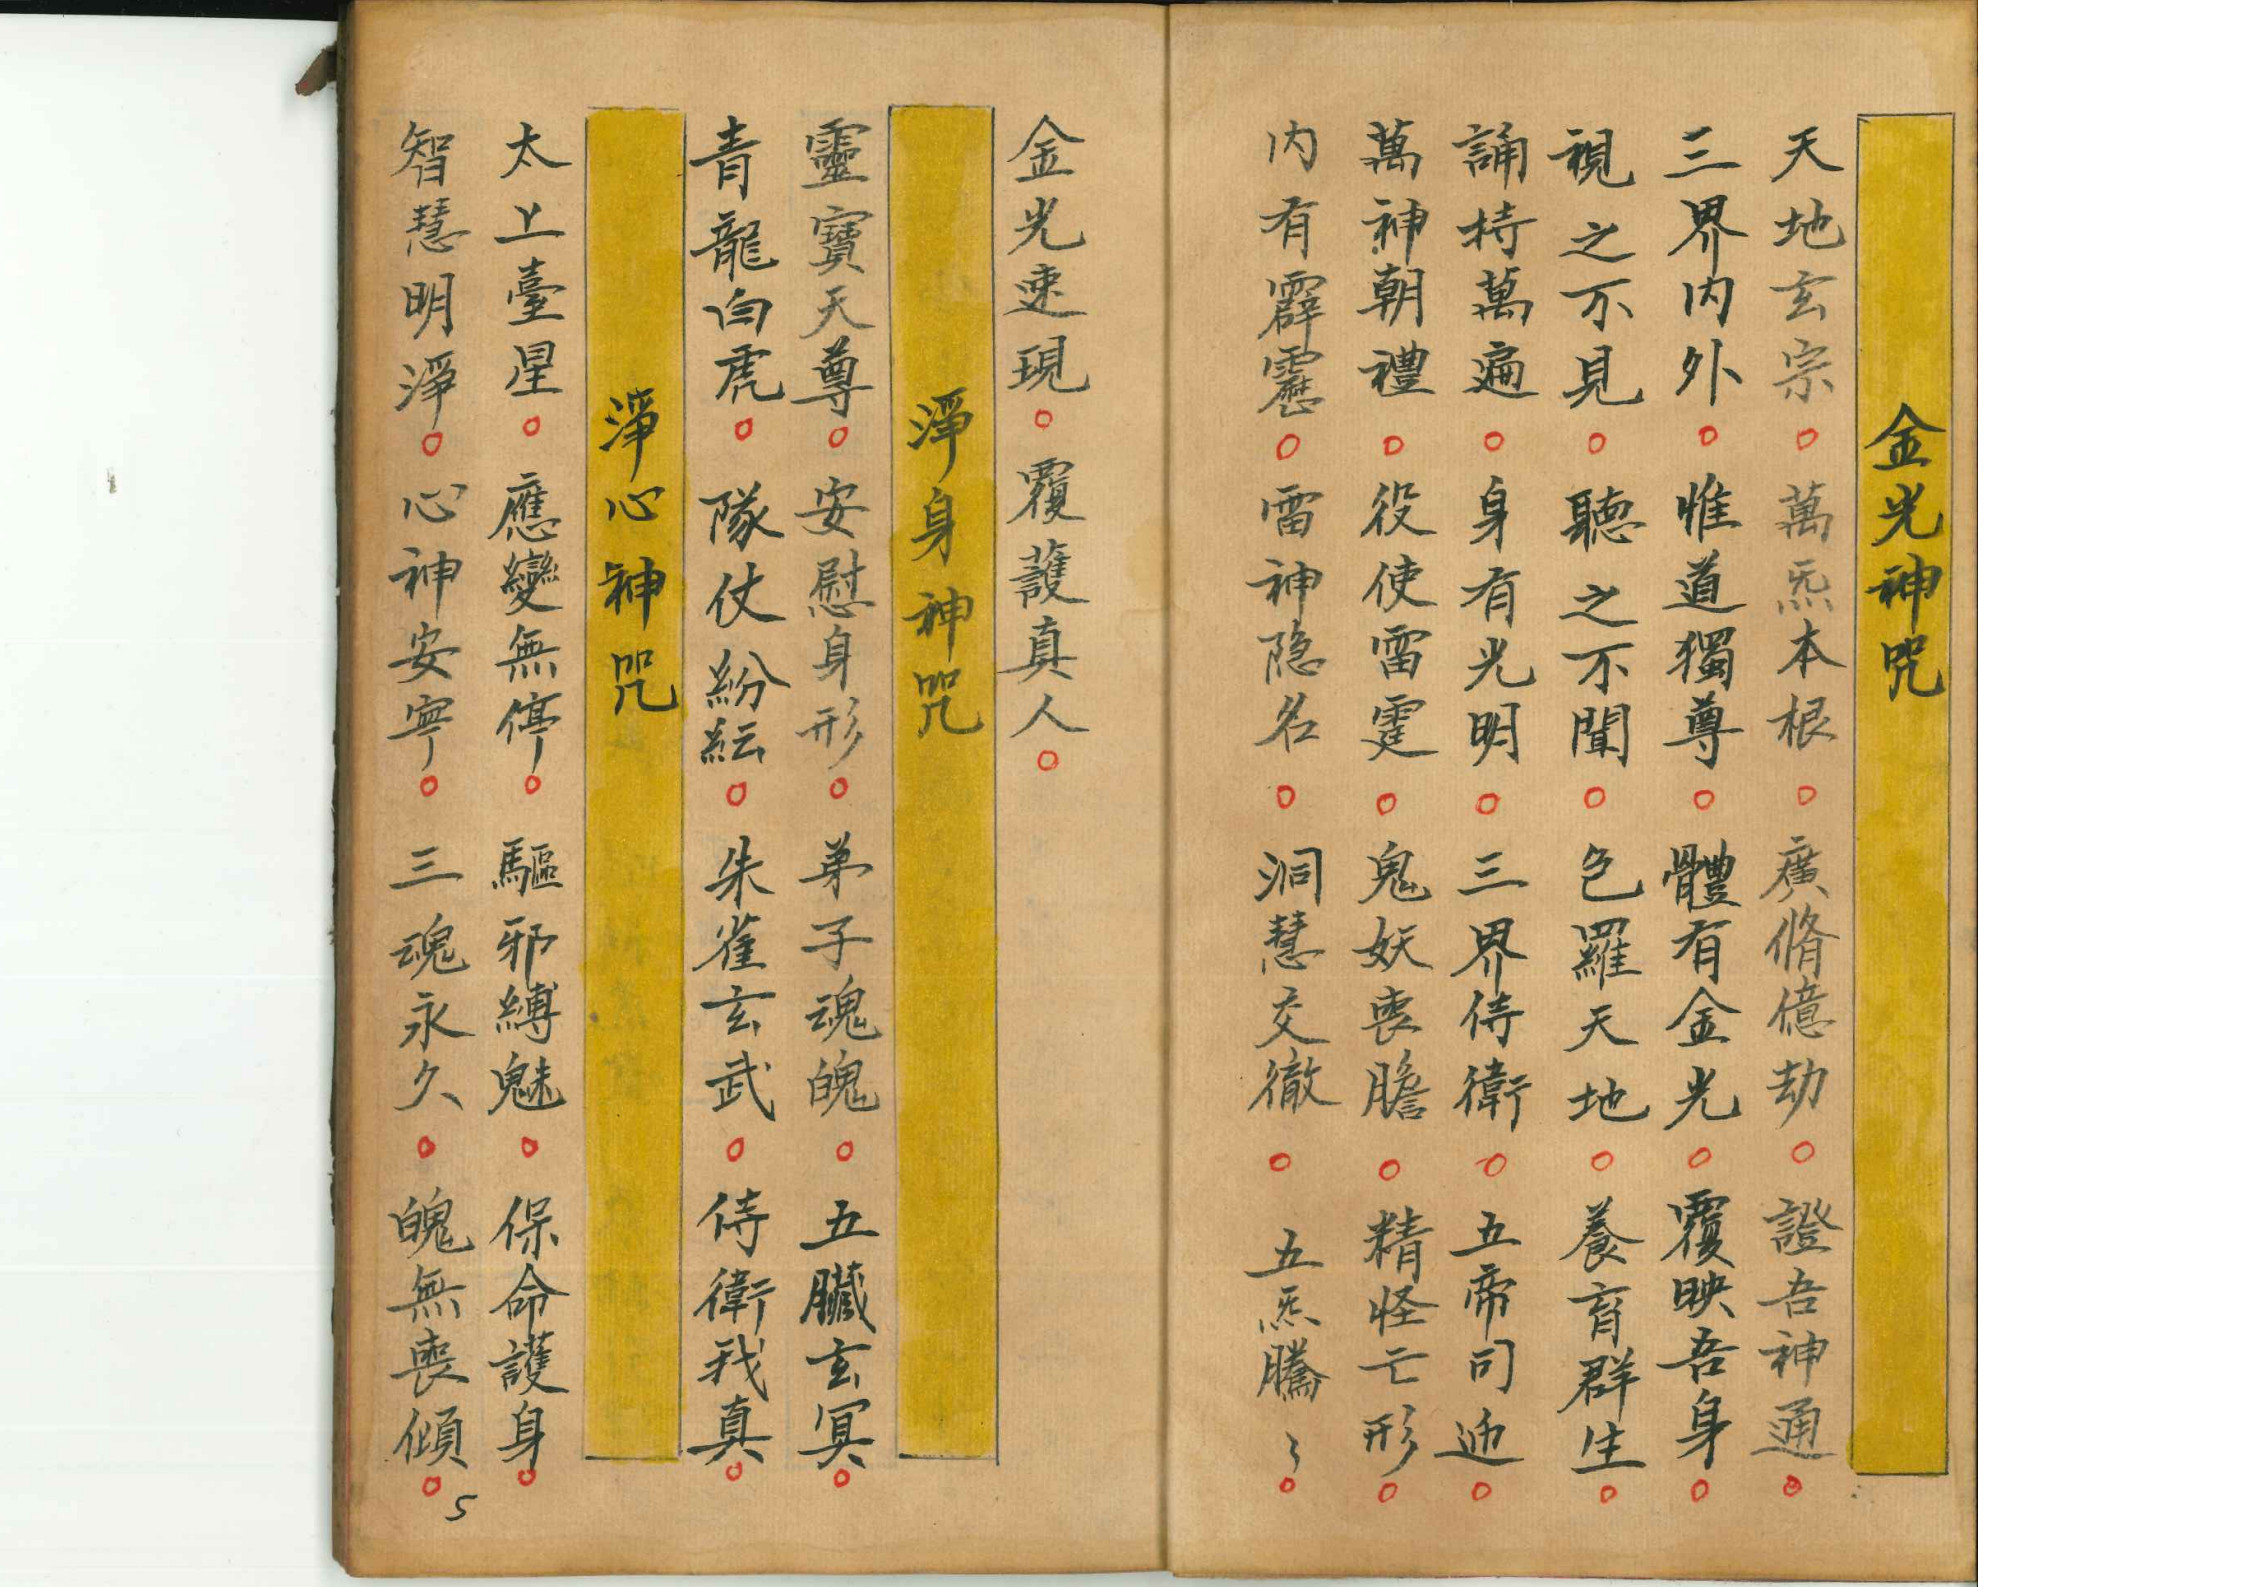 金光神咒
天地玄宗○萬炁本根○廣脩億劫○證吾神通○
三界內外○惟道獨尊○體有金光○覆映吾身○
視之不見○聽之不聞○色羅天地○養育群生○
誦持萬遍○身有光明○三界侍衛○五帝司迎○
萬神朝禮○役使雷霆○鬼妖喪膽○精怪亡形○
内有霹靂○雷神隐名○洞慧交徹○五炁騰〻○
金光速現○覆護真人○
淨身神咒
靈寶天尊○安慰身形○弟子魂魄○五臟玄冥○
青龍白虎○隊仗紛紜○朱雀玄武○侍衛我真○
淨心神咒
太上臺星○應變無停○驅邪縛魅○保命護身○
智慧明淨○心神安寧○三魂永久○魄無喪傾○
5